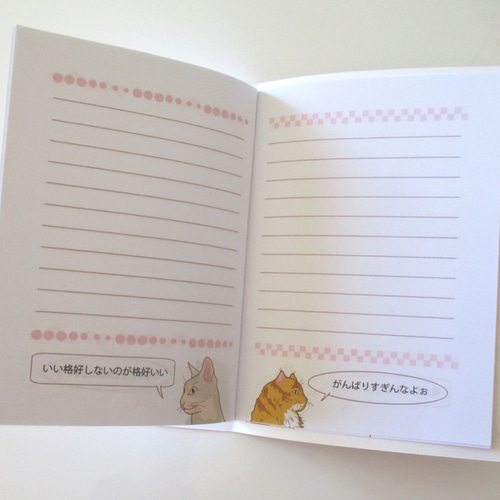 いい格好しないのが格好いい
がんばりすぎんなよぉ